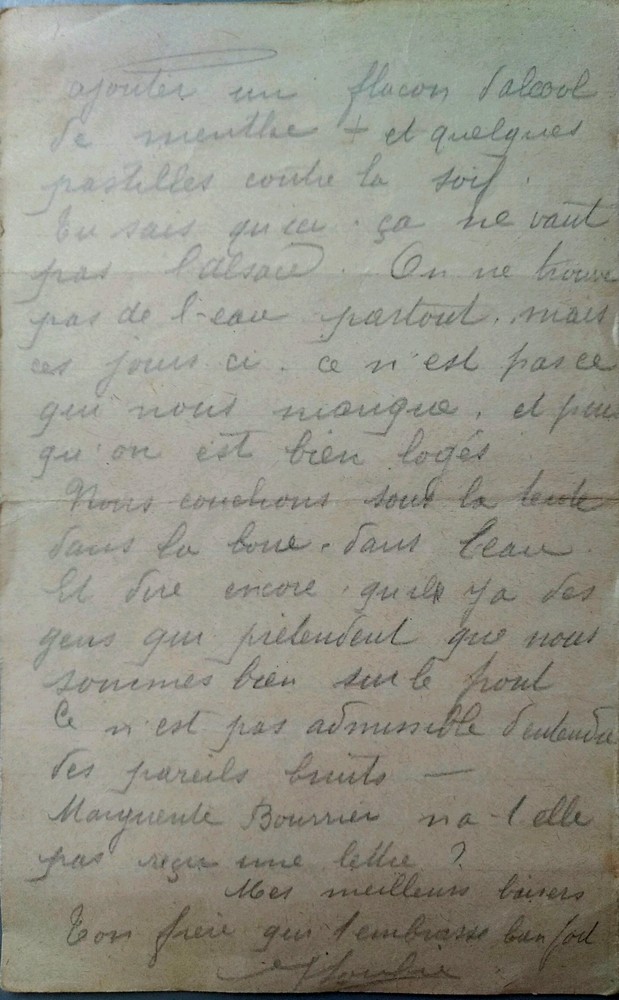 ajouter un flacon d'alcool
de menthe + et quelques
pastilles contre la soif.
Tu sais qu'ici. ça ne vaut
pas l'Alsace. On ne trouve
pas de l-eau partout. mais
ces jours ci. ce n'est pas ce
qui nous manque. et puis
qu'on est bien logés
Nous couchons sous la tente
dans la boue. dans l'eau.
Et dire encore qu'il y a des
gens qui prétendent que nous
sommes bien sur le front
Ce n'est pas admissible d'entendre
des pareils bruits —
Marguerite Bourrier n'a-t elle
pas reçu une lettre ?
Mes meilleurs baisers
Ton frère qui t'embrasse bien fort